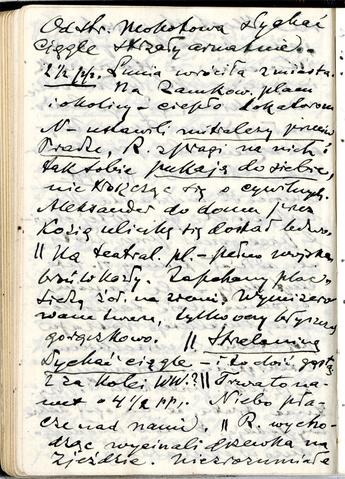 Od str. Mokotowa słychać
ciągle strzały armatnie.
2 1/2 pp. Lunia wróciła z miasta.
Na Zamkow. placu
i okolicy –
N – ustawili mitraliezy przeciw
Pradze, R. z Pragi na nich i
tak sobie pukają do siebie,
nie troszcząc się o cywilnych.
Aleksander do domu przez
Kozią uliczkę się dostał ledwo.
|| Na teatral. pl. – pełno wojska,
brów Kozły. Zapchany plac
Siedzą żoł. na ziemi, wymizero
wane twarze, tylko oczy błyszczą
gorączkowo. || Strzelaninę
słychać ciągle – i to dość gęstą
z za Kolei WW.? || Trwało na-
wet o 4 1/2 pp. Niebo pła-
cze nad nami. || R. wycho-
dząc wycinali drzewka na
Zjeździe. Niezrozumiałe